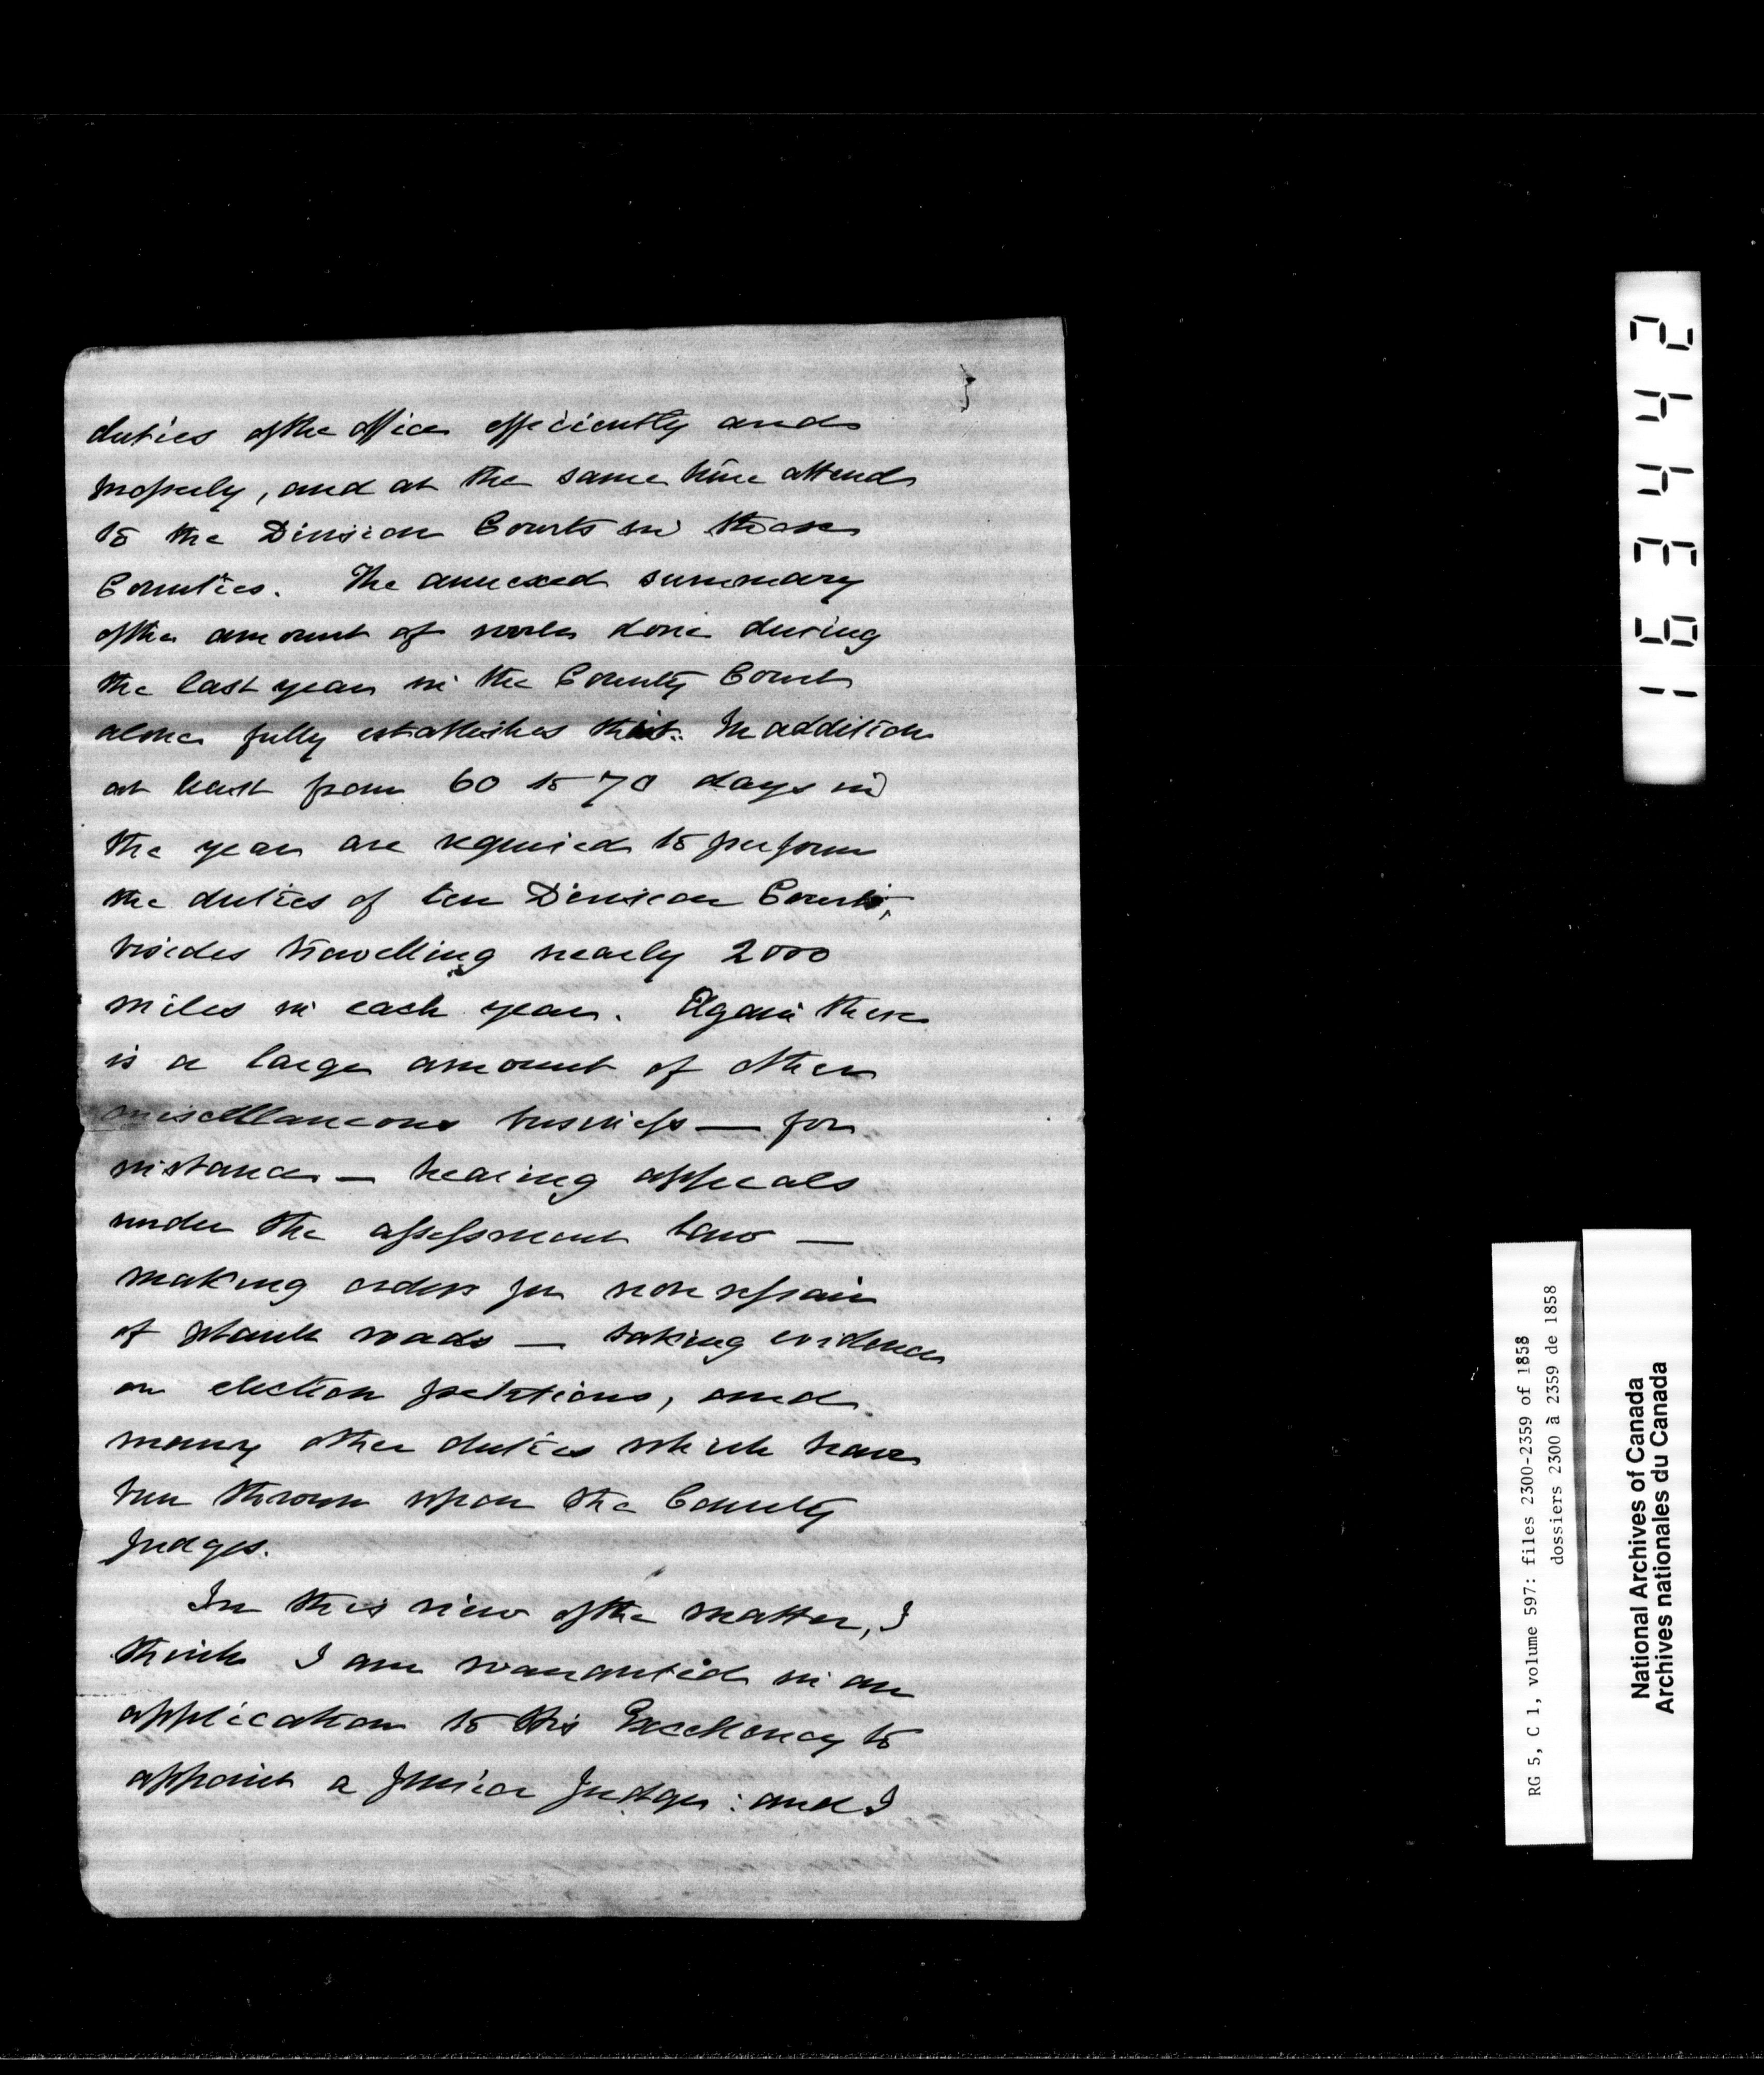 duties of the office efficiently and
properly, and at the same time attend
to the Division Courts in these
Counties. The annexed summary
of the amount of work done during
the last year in the County Court
alone fully establishes this. In addition
at least from 60 to 70 days in
the year are required to perform
the duties of ten Division Courts,
besides travelling nearly 2000
miles in each year. Again there
is a large amount of other
miscellaneous business — for
instance — hearing appeals
under the assessment law —
making orders for non repair
of plank roads — taking evidence
on election petitions, and
many other duties which have
been thrown upon the County
Judges.
In this view of the matter, I
think I am warranted in an
application to His Excellency to
appoint a Junior Judge: and I
163442
RG 5, C 1, volume 597: files 2300-2359 of 1858
dossiers 2300 à 2359 de 1858
National Archives of Canada
Archives nationales du Canada